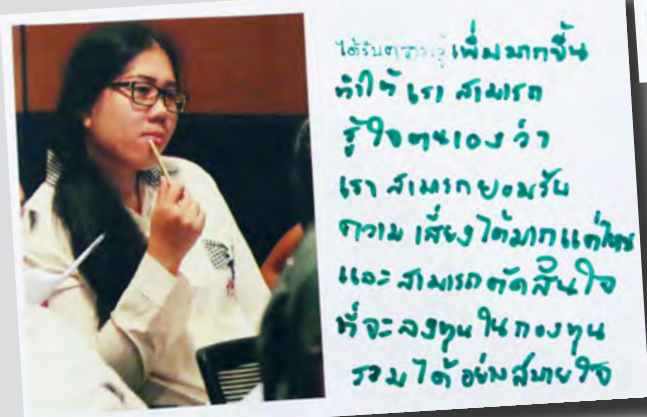 ได้รับความรู้เพิ่มมากขึ้น
ทำให้เราสามารถ
รู้ใจตนเองว่า
เราสามารถยอมรับ
ความเสี่ยงได้มากแค่ไหน
และสามารถตัดสินใจ
ที่จะลงทุนในกองทุน
รวมได้อย่างสบายใจ